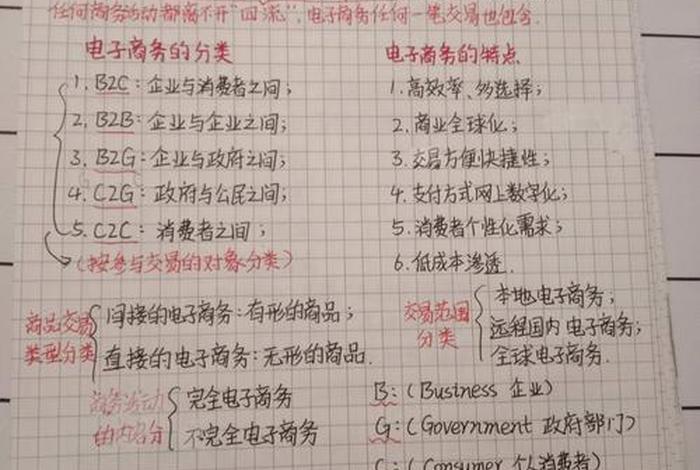 任何商务活动都离不开"四流",电子商务任何一笔交易也包含.
电子商务的分类
1. B2C:企业与消费者之间;
2. B2B:企业与企业之间;
3. B2G:企业与政府之间;
4. C2G:政府与公民之间;
5. C2C:消费者之间;
(按参与交易的对象分类)
电子商务的特点
1.高效率、多选择;
2.商业全球化;
3.交易方便快捷性;
4.支付方式网上数字化;
5.消费者个性化需求;
6.低成本渗透.
商品交易
类型分类
间接的电子商务:有形的商品;
直接的电子商务:无形的商品.
交易范围
分类
本地电子商务;
远程国内电子商务;
全球电子商务.
商务活动
的内容分
完全电子商务
不完全电子商务
B:(Business 企业)
G:(Government 政府部门)
C:(Consumer 个人消费者)